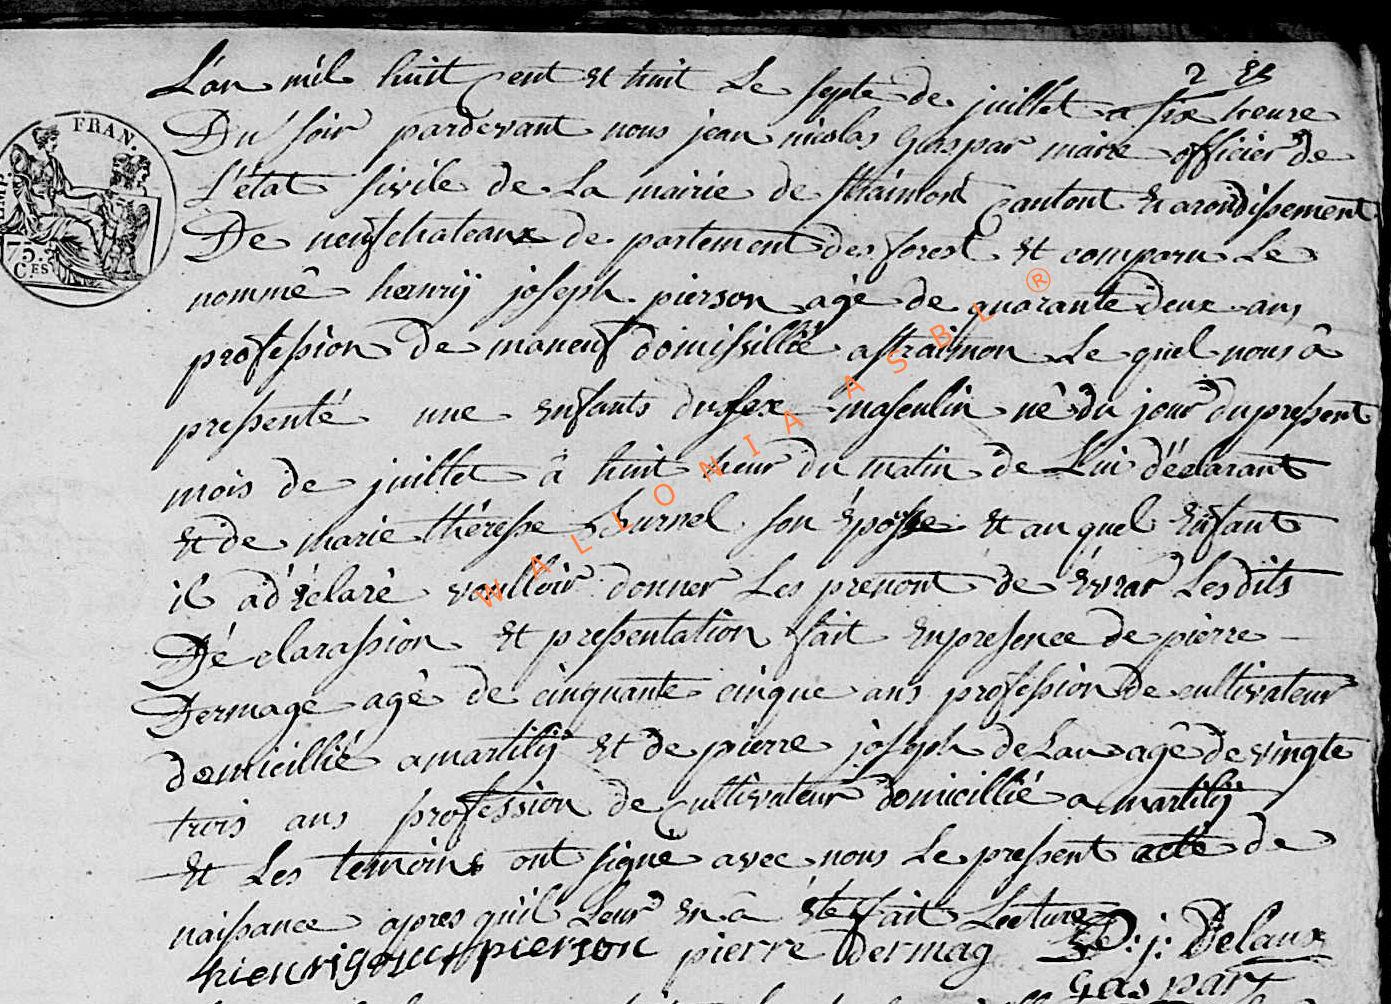 2 es
L'an mil huit cent et huit Le septe de juillet a six heure
Du soir pardevant nous jean nicolas Gaspar maire officier de
L'état sivile de La mairie de straimont Cantont et arondissement
De neufchateaux de partement des forest et comparu Le
nommé henrij joseph pierson agé de quarante deux ans
profession de maneuf domissillié astraimon Le quel nous â
pressenté une enfants dusex masculin né du jour du pressent
mois de juillet â huit heur du matin de Lui déclarant
et de marie théresse Surnel son épousse et au quel enfant
il adéclaré voulloir donner Les prenont de évrar Lesdits
Déclarassion et pressentation fait enpresence de pierre
Dermage agé de cinquante cinque ans profession de cultivateur
domicillié a martilij et de pierre joseph deLau agé de vingte
trois ans profession de Cultivateur domicillié a martilij
et Les temoins ont signé avec nous Le pressent acte de
naissance apres quil Leur en â été fait Lecture
pierson pierre Dermag P: j: Delaux
Gaspart
FRAN.
TIMP.
75.
C.ES
WALLONIA ASBL ®